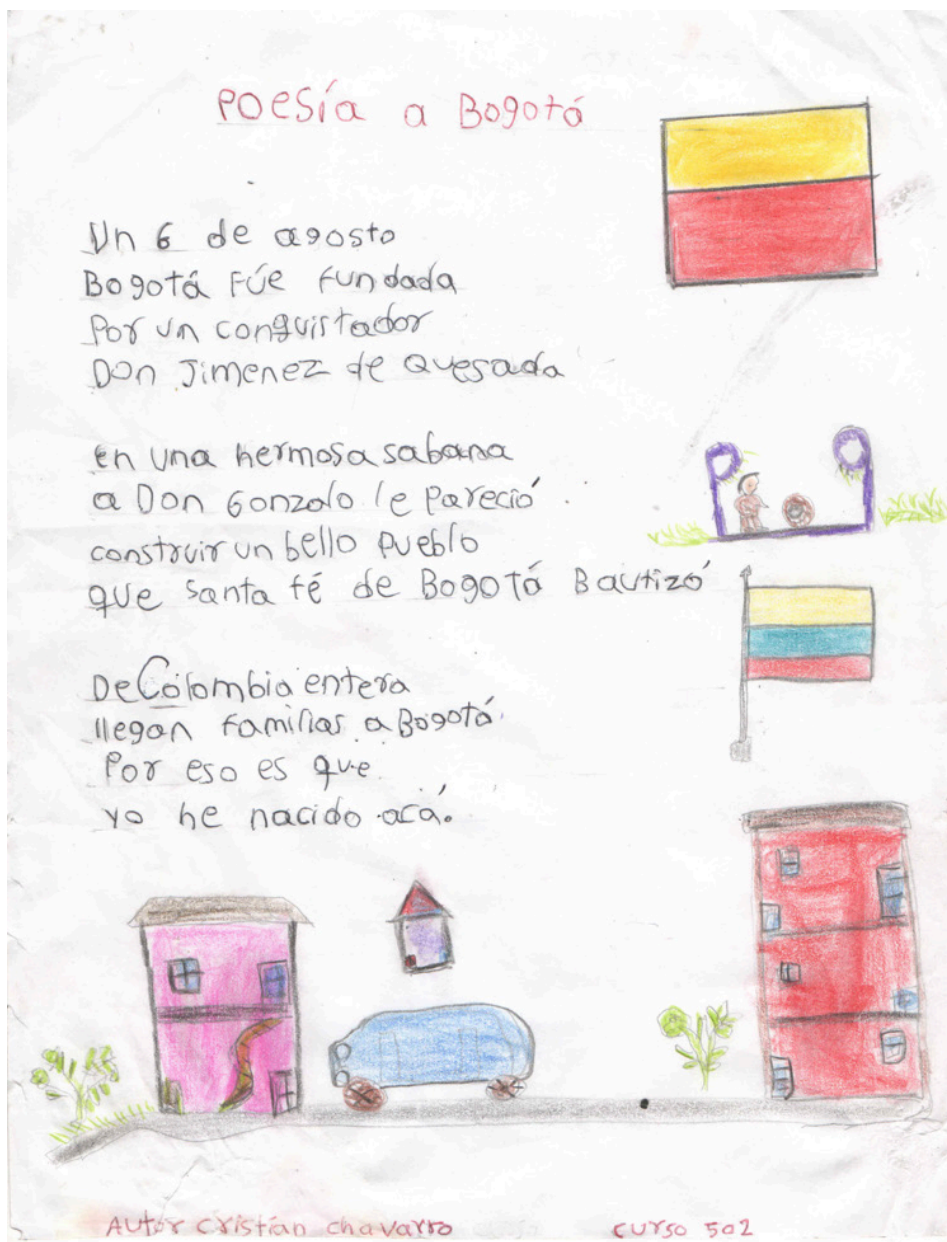 Poesía a Bogotá
Un 6 de agosto
Bogotá Fúe fundada
Por un conquistador
Don Jimenez de Quesada
en una hermosa sabana
a Don Gonzalo le Pareció.
construir un bello Pueblo
que Santa fé de Bogotá Bautizó
De Colombia entera
llegan familias a Bogotá.
Por eso es que
yo he nacido acá.
Autor Cristian Chavarro
curso 502